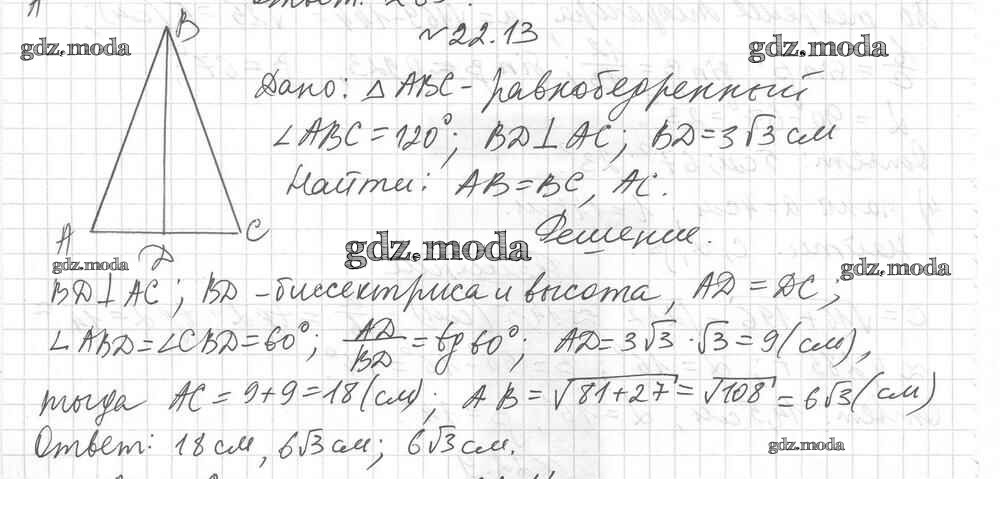 №22.13
B
gdz.moda
gdz.moda
Дано: △ABC - равнобедренный
∠ABC = 120°; BD⊥AC; BD = 3√3 см
Найти: AB = BC, AC.
A D C
gdz.moda Решение.
gdz.moda gdz.moda
BD⊥AC; BD - биссектриса и высота, AD = DC;
∠ABD = ∠CBD = 60°; AD/BD = tg 60°; AD = 3√3 · √3 = 9 (см),
тогда AC = 9 + 9 = 18 (см); AB = √81+27 = √108 = 6√3 (см)
Ответ: 18 см, 6√3 см; 6√3 см.
gdz.moda